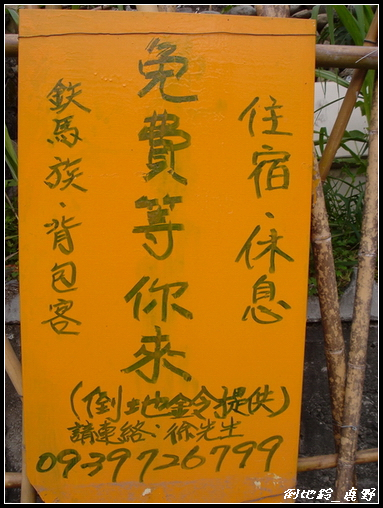 住宿·休息
免費等你來
鉄馬族·背包客
(倒地鈴提供)
請連絡·徐先生
0939726799
倒地鈴_鹿野